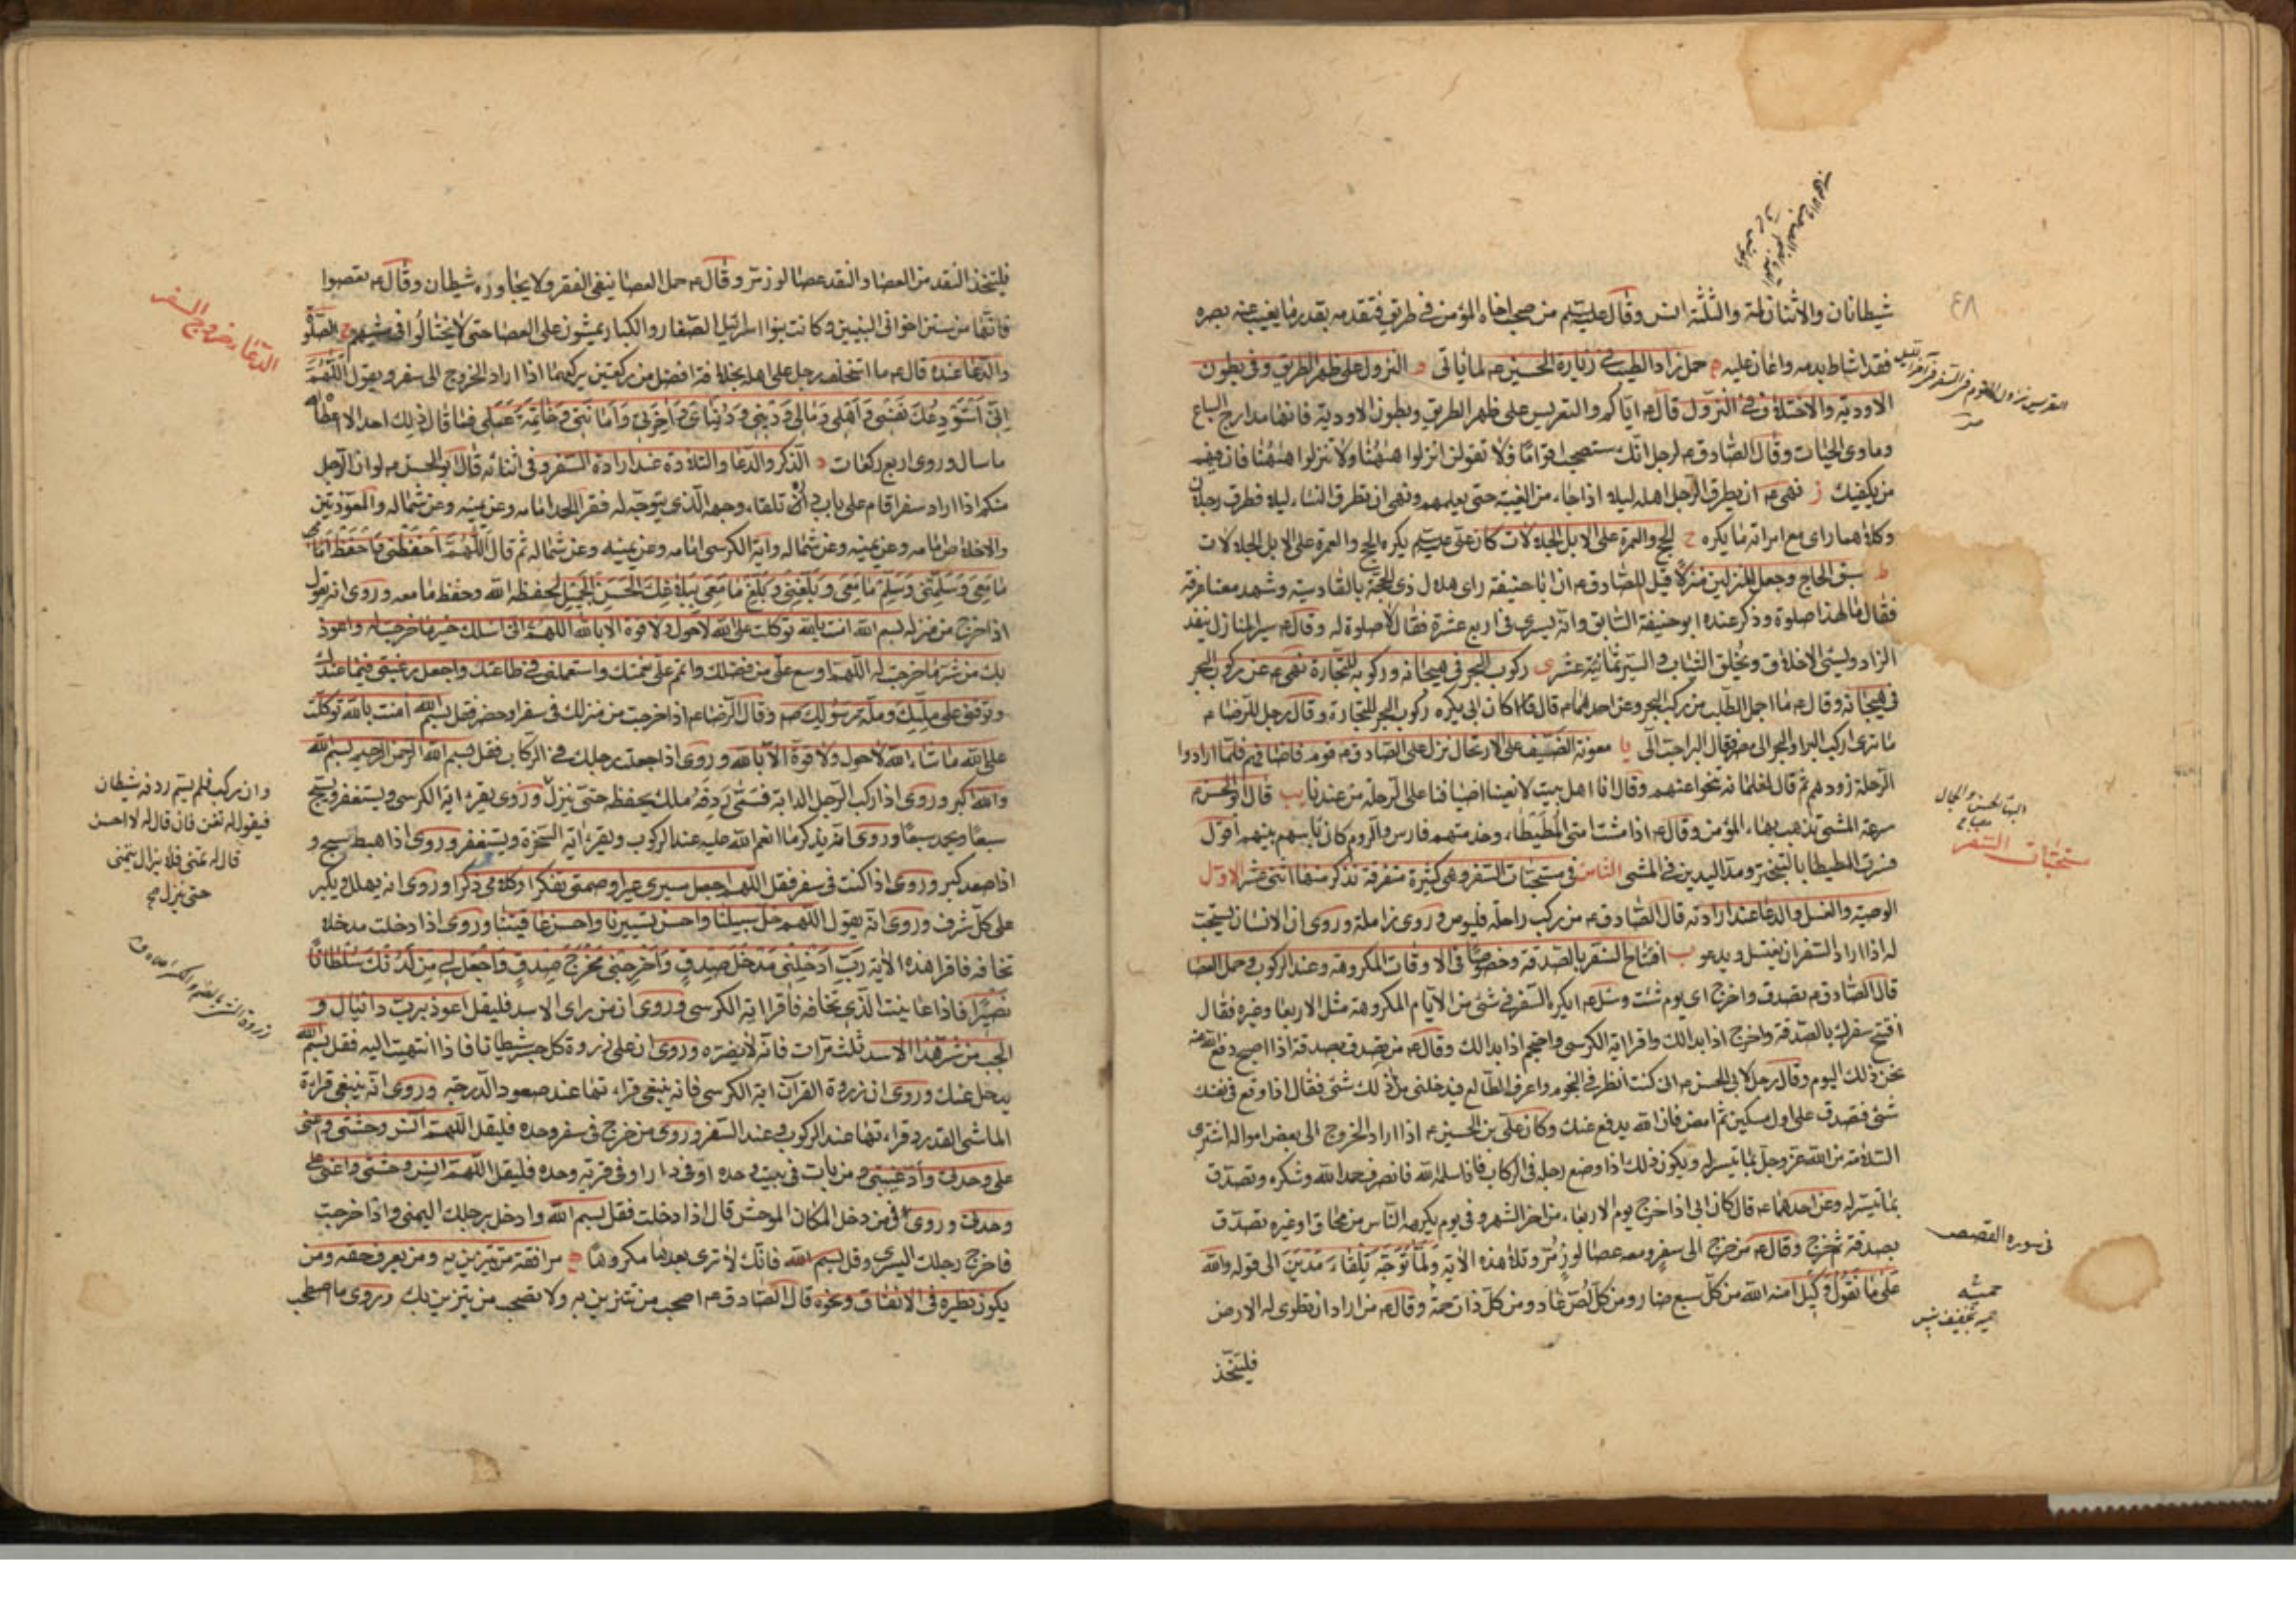 ٤٨
شيطانان والاثنان لمة والثلثة انس وقال عليه السلم من صحب اخاه المؤمن في طريق فتقدمه بقدر ما يغيب عنه بصره
فقد اشاط بدمه واعان عليه ه حمل زاد الطيب في زيارة الحسين ع لما ياتى و النزول على ظهر الطريق وفي بطون
الاودية والاختلاف في النزول قال ع اياكم والتعريس على ظهر الطريق وبطون الاودية فانها مدارج السباع
وماوى الحيات وقال الصادق ع لرجل انك ستصحب اقواما فلا تقولن انزلوا ههنا ولا تنزلوا ههنا فان فيهم
من يكفيك ز نهى ع ان يطرق الرجل اهله ليلا اذا جاء من الغيبة حتى يعلمهم ونهى ان تطرق النساء ليلا فطرق رجلان
وكلاهما راى مع امراته ما يكره ح الحج والعمرة على الابل الجلالات كان علي عليه السلم يكره الحج والعمرة على الابل الجلالات
ط سبق الحاج وجعل المنزلين منزلا قيل للصادق ع ان ابا حنيفة راى هلال ذى الحجة بالقادسية وشهد معنا عرفة
فقال ما لهذا صلوة وذكر عنده ابو حنيفة السابق وانه يسرى في اربع عشرة فقال لا صلوة له وقال ع سير المنازل ينفد
الزاد ويسئ الاخلاق ويخلق الثياب والسير ثمانية عشر ى ركوب البحر في هيجانه وركوبه للتجارة نهى ع عن ركوب البحر
في هيجانه وقال ع ما اجمل الطلب من ركب البحر وعن احدهما ع قال كان ابى يكره ركوب البحر للتجارة وقال رجل للرضا ع
ما ترى اركب البر او البحر الى مصر فقال البر احب الى يا معونة الضيف على الارتحال نزل على الصادق ع قوم فاضافهم فلما ارادوا
الرحلة زودهم ثم قال لغلمانه تنحوا عنهم وقال انا اهل بيت لا نعين اضيافنا على الرحلة من عندنا يب قال ابو الحسن ع
سرعة المشى تذهب ببهاء المؤمن وقال ع اذا مشت امتى المطيطاء وخدمتهم فارس والروم كان باسهم بينهم اقول
فسرت المطيطا بالتبختر ومد اليدين في المشى الثامن في مستحبات السفر وهى كثيرة متفرقة نذكر منها اثنى عشر الاول
الوصية والغسل والدعا عند ارادته قال الصادق ع من ركب راحلة فليوص وروى زاملة وروى ان الانسان يستحب
له اذا اراد السفر ان يغتسل ويدعو ب افتتاح السفر بالصدقة وخصوصا في الاوقات المكروهة وعند الركوب وحمل العصا
قال الصادق ع تصدق واخرج اى يوم شئت وسئل ع ايكره السفر في شئ من الايام المكروهة مثل الاربعا وغيره فقال
افتتح سفرك بالصدقة واخرج اذا بدا لك واقرا اية الكرسى واحتجم اذا بدا لك وقال ع من تصدق بصدقة اذا اصبح دفع الله عنه
نحس ذلك اليوم وقال رجل لابى الحسن ع انى كنت انظر في النجوم واعرف الطالع فيدخلنى من ذلك شئ فقال اذا وقع في نفسك
شئ فتصدق على اول مسكين ثم امض فان الله يدفع عنك وكان على بن الحسين ع اذا اراد الخروج الى بعض امواله اشترى
السلامة من الله عز وجل بما تيسر له ويكون ذلك اذا وضع رجله في الركاب فاذا سلمه الله فانصرف حمد الله وشكره وتصدق
بما تيسر له وعن احدهما ع قال كان ابى اذا خرج يوم الاربعاء من اخر الشهر وفى يوم يكرهه الناس من محاق او غيره تصدق
بصدقة ثم خرج وقال ع من خرج الى سفر ومعه عصا لوز مر وتلا هذه الاية ولما توجه تلقاء مدين الى قوله والله
على ما نقول وكيل امنه الله من كل سبع ضار ومن كل لص عاد ومن كل ذات حمة وقال ع من اراد ان تطوى له الارض
فليتخذ
مستحبات السفر
في سورة القصص
فليتخذ النقد من العصا والنقد عصا لوز مر وقال ع حمل العصا ينفى الفقر ولا يجاوره شيطان وقال ع تعصوا
فانها من سنن اخوانى النبيين وكانت بنوا اسرائيل الصغار والكبار يمشون على العصا حتى لا يختالوا في مشيهم ج الصلوة
والدعا عنده قال ع ما استخلف رجل على اهله بخلافة افضل من ركعتين يركعهما اذا اراد الخروج الى سفر ويقول اللهم
انى استودعك نفسى واهلى ومالى ودينى ودنياى واخرتى وامانتى وخاتمة عملى فما قال ذلك احد الا اعطاه الله
ما سال وروى اربع ركعات د الذكر والدعا والتلاوة عند ارادة السفر وفى اثنائه قال ابو الحسن ع لو ان الرجل
منكم اذا اراد سفرا قام على باب داره تلقاء وجهه الذى يتوجه له فقرا الحمد امامه وعن يمينه وعن شماله والمعوذتين
والاخلاص امامه وعن يمينه وعن شماله واية الكرسى امامه وعن يمينه وعن شماله ثم قال اللهم احفظنى واحفظ
ما معى وسلمنى وسلم ما معى وبلغنى وبلغ ما معى ببلاغك الحسن الجميل لحفظه الله وحفظ ما معه وروى انه يقول
اذا خرج من منزله بسم الله امنت بالله توكلت على الله لا حول ولا قوة الا بالله اللهم انى اسئلك خير ما خرجت له واعوذ
بك من شر ما خرجت له اللهم اوسع على من فضلك واتم على نعمتك واستعملنى في طاعتك واجعل رغبتى فيما عندك
وتوفنى على ملتك وملة رسولك ص وقال الرضا ع اذا خرجت من منزلك في سفر او حضر فقل بسم الله امنت بالله توكلت
على الله ما شاء الله لا حول ولا قوة الا بالله وروى اذا جعلت رجلك في الركاب فقل بسم الله الرحمن الرحيم بسم الله
والله اكبر وروى اذا ركب الرجل الدابة فسمى ردفه ملك يحفظه حتى ينزل وروى يقرء اية الكرسى ويستغفر ويسبح
سبعا ويحمد سبعا وروى انه يذكر ما انعم الله عليه عند الركوب ويقرء اية السخرة ويستغفر وروى اذا هبط سبح و
اذا صعد كبر وروى اذا كنت في سفر فقل اللهم اجعل سيرى عبرا وصمتى تفكرا وكلامى ذكرا وروى انه يهلل ويكبر
على كل شرف وروى انه يقول اللهم خل سبيلنا واحسن تسييرنا واحسن عاقبتنا وروى اذا دخلت مدخلا
تخافه فاقرا هذه الاية رب ادخلنى مدخل صدق واخرجنى مخرج صدق واجعل لى من لدنك سلطانا
نصيرا فاذا عاينت الذى تخافه فاقرا اية الكرسى وروى ان من راى الاسد فليقل اعوذ برب دانيال و
الجب من شر هذا الاسد ثلث مرات فانه لا يضره وروى ان على ذروة كل جسر شيطانا فاذا انتهيت اليه فقل بسم الله
يرحل عنك وروى ان ذروة القران اية الكرسى فانه ينبغى قراءتها عند صعود الدرجة وروى انه ينبغى قراءة
الماشى القدر وقراءتها عند الركوب وعند السفر وروى من خرج في سفر وحده فليقل اللهم انس وحشتى واعنى
على وحدتى واد غيبتى ومن بات في بيت وحده او في دار او في قرية وحده فليقل اللهم انس وحشتى واعنى على
وحدتى وروى فيمن دخل المكان الموحش قال اذا دخلت فقل بسم الله وادخل برجلك اليمنى واذا خرجت
فاخرج رجلك اليسرى وقل بسم الله فانك لا ترى بعدها مكروها ه مرافقة من يتزين به ومن يعرف حقه ومن
يكون نظيره في الانفاق ونحوه قال الصادق ع اصحب من تتزين به ولا تصحب من يتزين بك وروى ما اصطحب
الدعاء خروج السفر
وان ركب فلم يسم ردفه شيطان
فيقول له تغن فان قال له لا احسن
قال له تمنى فلا يزال يتمنى
حتى ينزل